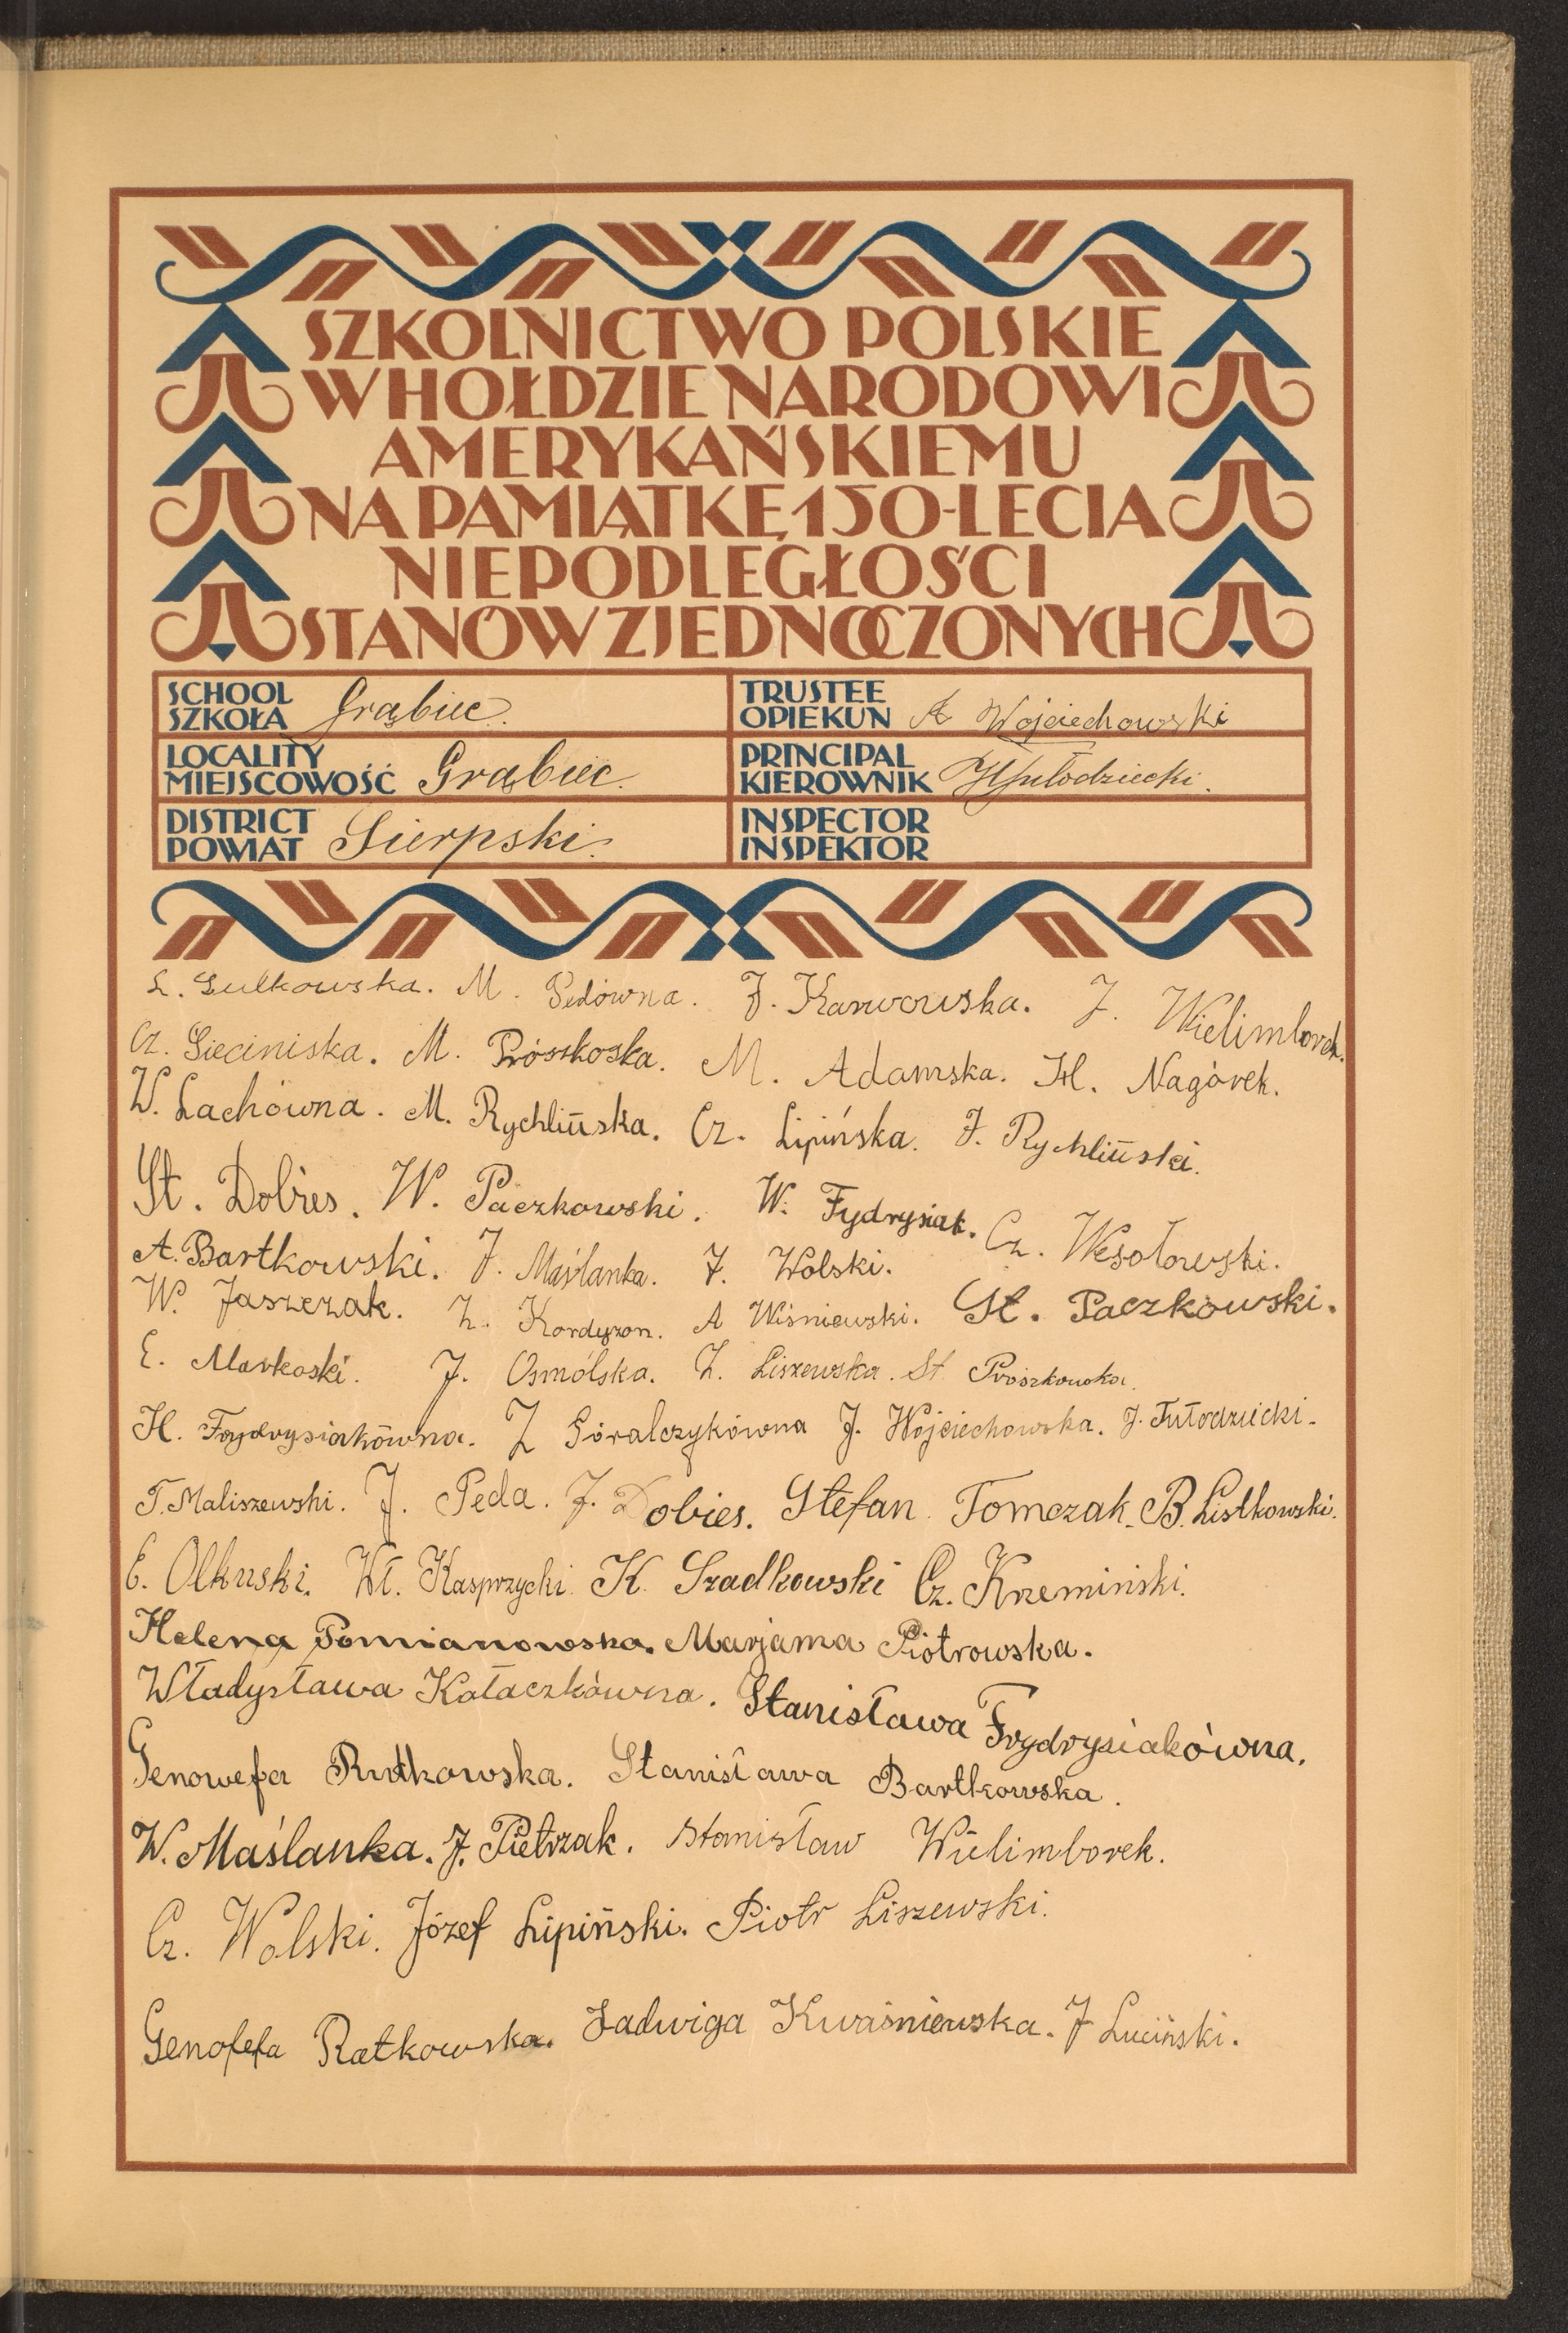 SZKOLNICTWO POLSKIE
W HOŁDZIE NARODOWI
AMERYKAŃSKIEMU
NA PAMIĄTKĘ 150-LECIA
NIEPODLEGŁOŚCI
STANÓW ZJEDNOCZONYCH
SCHOOL
SZKOŁA Grąbiec.
TRUSTEE
OPIEKUN A Wojciechowski
LOCALITY
MIEJSCOWOŚĆ Grąbiec.
PRINCIPAL
KIEROWNIK
DISTRICT
POWIAT Sierpski.
INSPECTOR
INSPEKTOR
L. Gulkowska. M. Pedówna. J. Karwowska. J. Wielimborek.
Cz. Sieciniska. M. Prószkoska. M. Adamska. H. Nagórek.
W. Lachówna. M. Rychlińska. Cz. Lipińska. J. Rychliński.
St. Dobies. W. Paczkowski. W. Fydrysiak. Cz. Wesołowski.
A. Bartkowski. J. Maślanka. J. Wolski.
W. Jaszczak. Z. Kordyzon. A Wiśniewski. St. Paczkowski.
E. Markoski. J. Osmólska. Z. Liszewska. St Prószkowska.
H. Frydrysiakówna. Z Góralczykówna J. Wojciechowska. J. Fułodziecki.
T. Maliszewski. J. Peda. J. Dobies. Stefan Tomczak. B. Listkowski.
E. Olkuski. Wł. Kasprzycki K. Szadkowski Cz. Krzemiński.
Helena Pomianowska. Marjanna Piotrowska.
Władysława Kołaczkówna. Stanisława Frydrysiakówna.
Genowefa Rutkowska. Stanisława Bartkowska.
W. Maślanka. J. Pietrzak. Stanisław Wielimborek.
Cz. Wolski. Józef Lipiński. Piotr Liszewski.
Genofefa Ratkowska. Jadwiga Kwaśniewska. J Luciński.